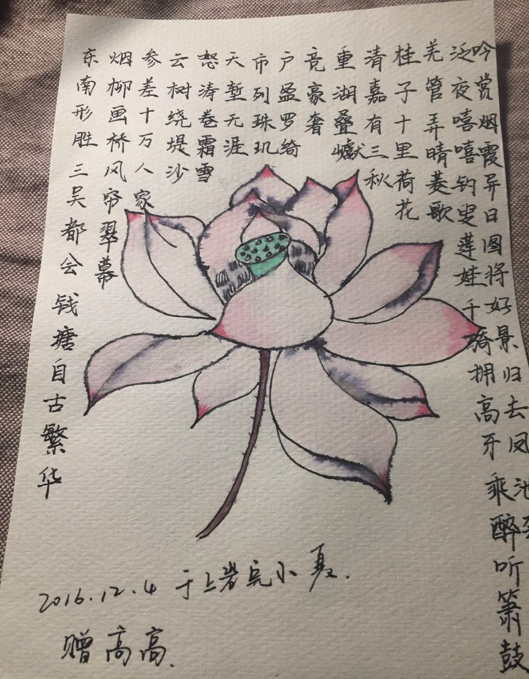 东南形胜 三吴都会 钱塘自古繁华
烟柳画桥风帘翠幕
参差十万人家
云树绕堤沙
恕涛卷霜雪
天堑无涯
市列珠玑
户盈罗绮
竞豪奢
重湖叠巘
清嘉有三秋
桂子十里荷花
羌管弄晴菱歌
泛夜嘻嘻钓叟莲娃千骑拥高牙 乘醉听箫鼓
吟赏烟霞异日图将好景归去凤池
2016.12.4 于上岩完小 夏.
赠高高.